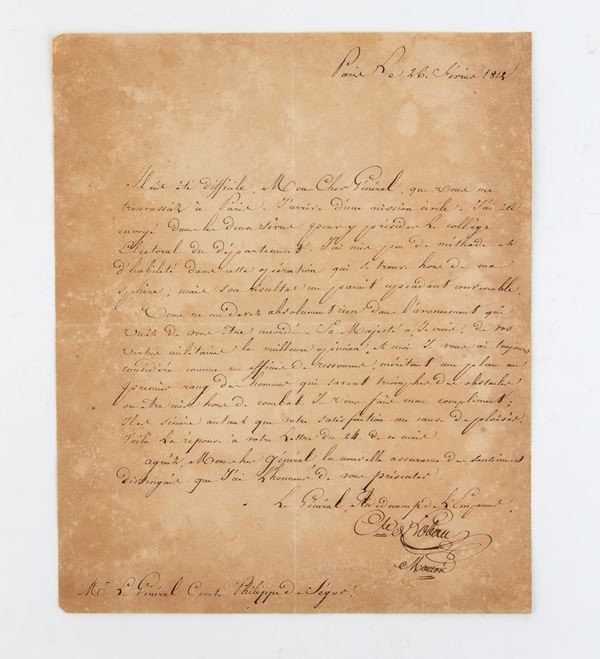 Paris Le 26. Février 181
Il eût été difficile, Mon Cher Général, que vous me
trouvassiez à Paris. J'arrive d'une mission civile. J'ai été
envoyé dans les deux Sèvres pour y présider le collège
Electoral du département. J'ai mis peu de méthode et
d'habilité dans cette opération qui se trouve hors de ma
sphère; mais son résultat me parait cependant convenable.
Vous ne me devez absolument rien dans l'avancement qui
vient de vous être accordé. Sa Majesté a, je crois, de vos
vertus militaires la meilleure opinion, et moi je vous ai toujours
considéré comme un officier de ressource, méritant une place au
premier rang des hommes qui savent triompher des obstacles
ou être mis hors de combat. Je vous fais mon compliment;
Il est sincère autant que votre satisfaction me cause de plaisir.
Voilà la réponse à votre Lettre du 24. de ce mois
agréez, Mon cher Général la nouvelle assurance des sentimens
distingués que J'ai L'honneur de vous présenter.
Le Général, Aide de camp de L'Empereur,
Cte de Lobau
Mouton
Mr. Le Général Comte Philippe de Ségur.